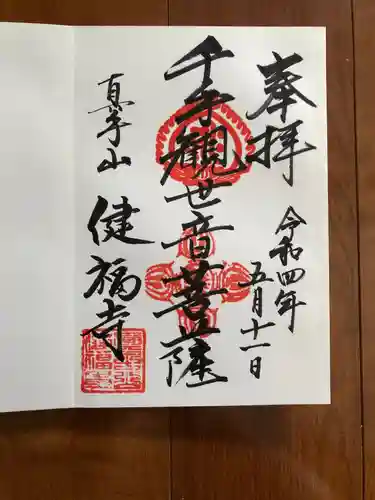 奉拝
令和四年
五月十一日
千手観世音菩薩
健福寺